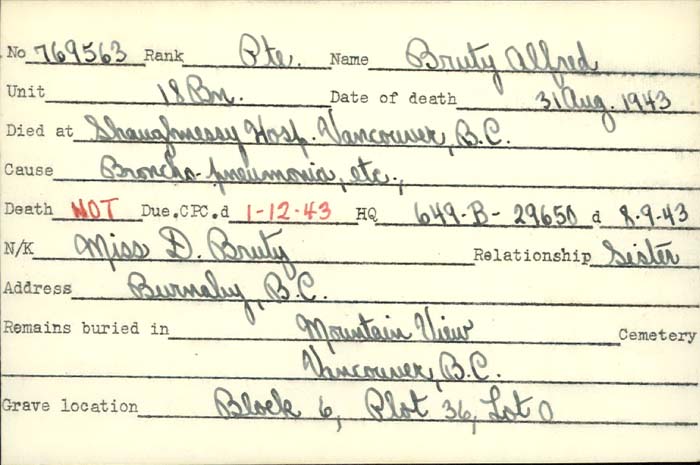 No 769563 Rank Pte. Name Bruty Alfred
Unit 18 Bn. Date of death 31 Aug. 1943
Died at Shaughnessy Hosp. Vancouver, B.C.
Cause Broncho-pneumonia, etc.,
Death NOT Due.CPC.d 1-12-43 HQ 649-B-29650 d 8-9-43
N/K Miss D. Bruty Relationship Sister
Address Burnaby, B.C.
Remains buried in Mountain View Cemetery
Vancouver, B.C.
Grave location Block 6, Plot 36, Lot O